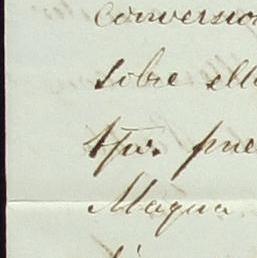 conversion
sobre ell
tpo. pue
Magua